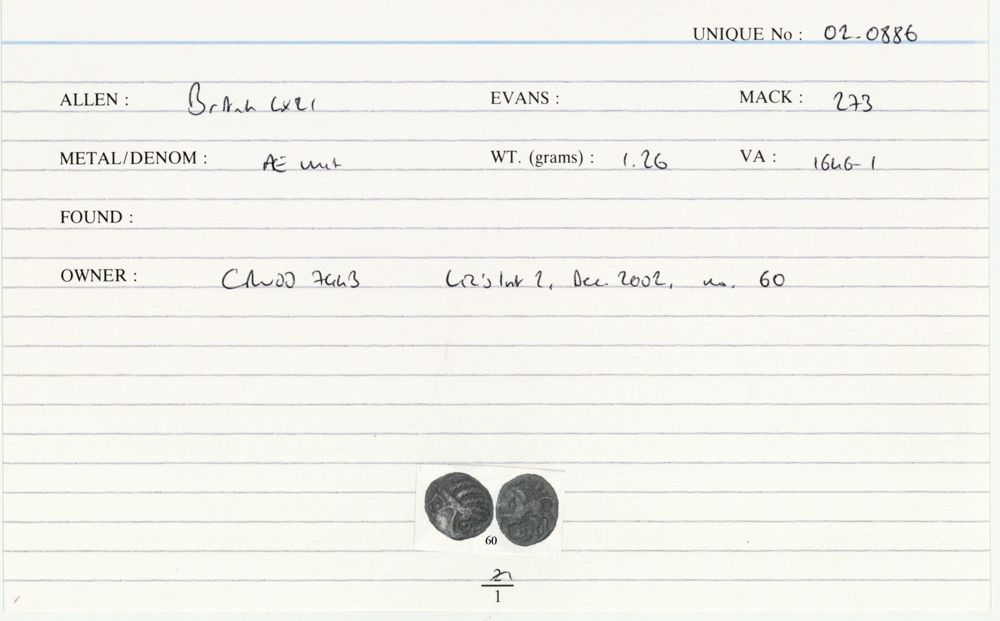 UNIQUE No : 02-0886
ALLEN : British LX21 EVANS : MACK : 273
METAL/DENOM : Æ unit WT. (grams) : 1.26 VA : 1646-1
FOUND :
OWNER : Liz's List 2, Dec. 2002, no. 60
60
1